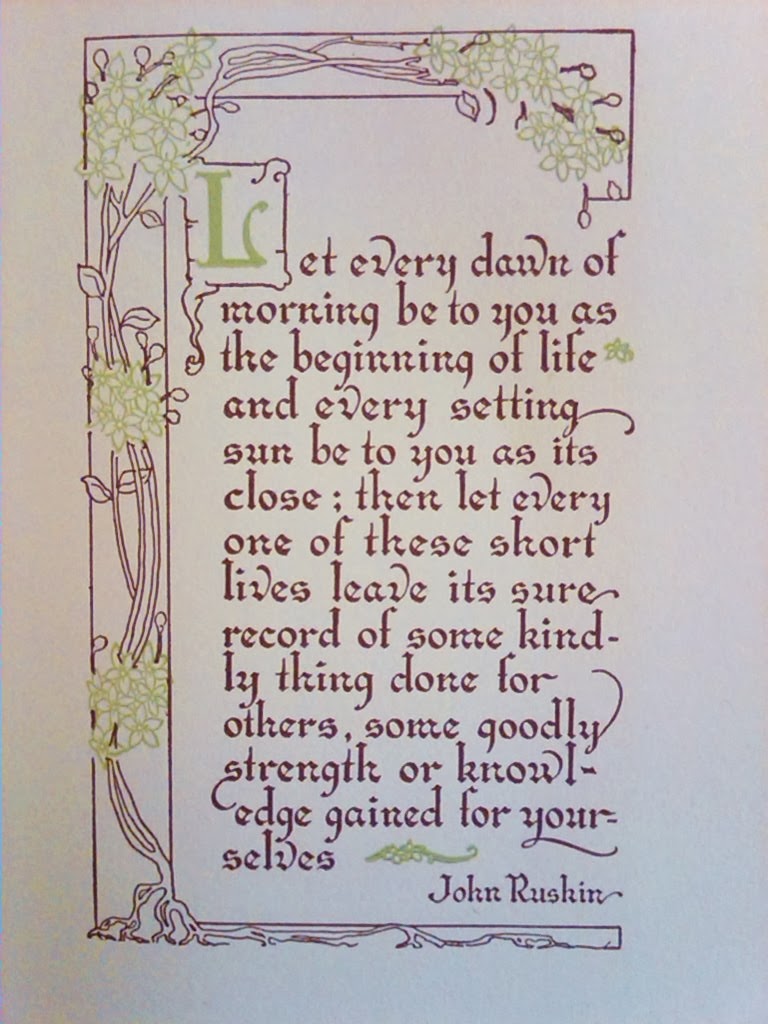 Let every dawn of
morning be to you as
the beginning of life
and every setting
sun be to you as its
close; then let every
one of these short
lives leave its sure
record of some kind-
ly thing done for
others, some goodly
strength or knowl-
edge gained for your-
selves
John Ruskin